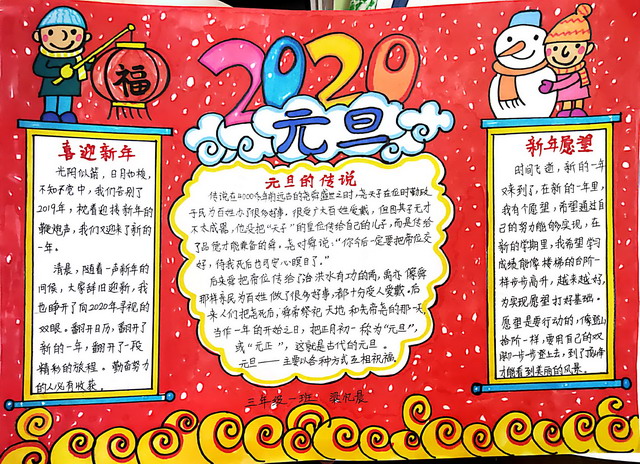 福
2020
元旦
喜迎新年
光阴似箭，日月如梭，
不知不觉中，我们告别了
2019年，祝着迎接新年的
鞭炮声，我们又迎来了新的
一年。
清晨，随着一声新年的
问候，大家辞旧迎新，我
也睁开了向2020年寻视的
双眼。翻开日历，翻开了
新的一年，翻开了一段
精彩的旅程。勤奋努力
的人必有收获。
元旦的传说
传说在4000多年前远古的尧舜盛世之时，尧天子在位时勤政
于民为百姓办了很多好事，很受广大百姓爱戴，但因其子无才
不太成器，他没把“天子”的皇位传给自己的儿子，而是传给
了品德才能兼备的舜。尧对舜说：“你今后一定要把帝位交
好，待我死后也可安心瞑目了。”
后来舜把帝位传给了治洪水有功的禹，禹亦像舜
那样亲民为百姓做了很多好事，都十分受人爱戴。后
来人们把尧死后，舜帝祭祀天地和先帝尧的那一天，
当作一年的开始之日，把正月初一称为“元旦”，
或“元正”，这就是古代的元旦。
元旦——主要以各种方式互相祝福。
新年愿望
时间飞逝，新的一年
又来到了，在新的一年里，
我有个愿望，希望通过自
己的努力能够实现，在
新的学期里，我希望学习
成绩能像楼梯的台阶一
样步步高升，越来越好，
为实现愿望打好基础。
愿望是要行动的，像登山
台阶一样，要用自己的双
脚一步步登上去，到了顶峰
才能看到美丽的风景。
三年级一班 梁忆晨